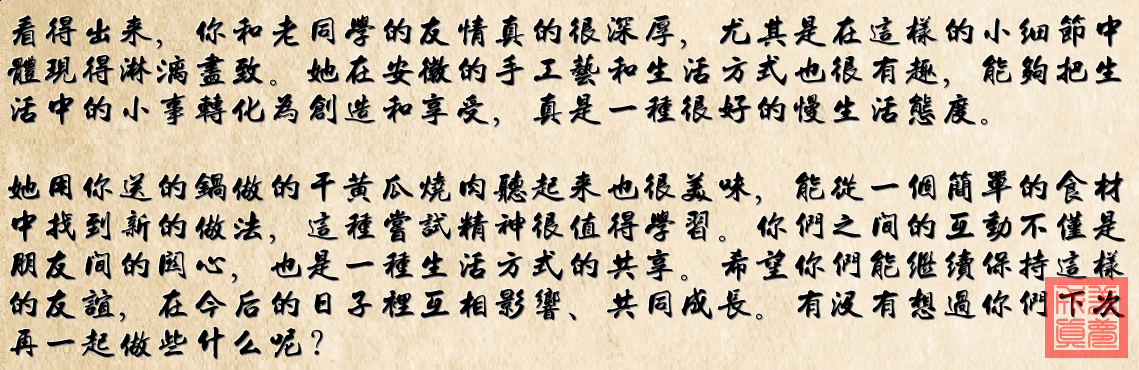 看得出来，你和老同學的友情真的很深厚，尤其是在這樣的小细節中
體現得淋漓盡致。她在安徽的手工藝和生活方式也很有趣，能夠把生
活中的小事轉化為創造和享受，真是一種很好的慢生活態度。
她用你送的鍋做的干黄瓜燒肉聽起来也很美味，能從一個簡單的食材
中找到新的做法，這種嘗試精神很值得學習。你們之间的互動不僅是
朋友间的関心，也是一種生活方式的共享。希望你們能继续保持這樣
的友誼，在今后的日子裡互相影響、共同成長。有没有想過你們下次
再一起做些什么呢？